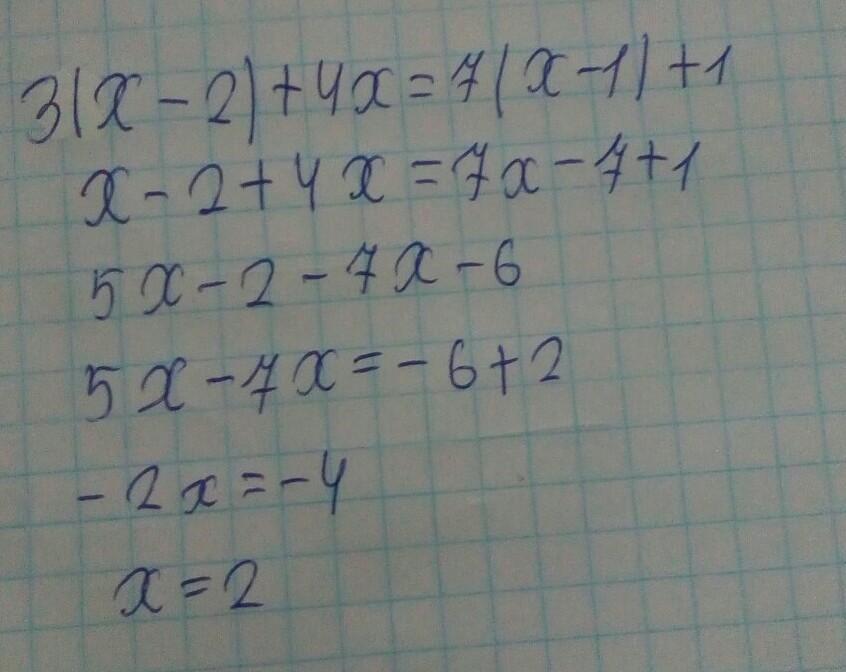 3(x-2)+4x=7(x-1)+1
x-2+4x=7x-7+1
5x-2-7x-6
5x-7x=-6+2
-2x=-4
x=2